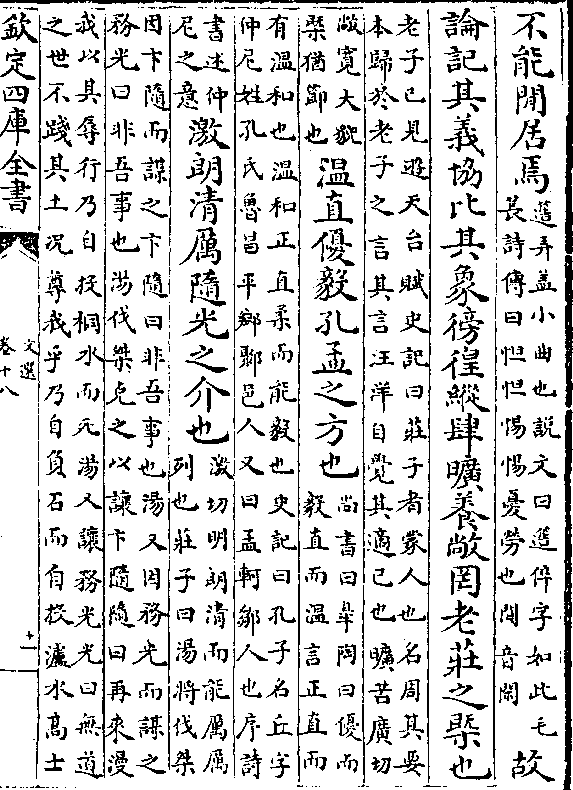 不能閒居焉
簉弄盖小曲也説文曰簉倅字如此毛
萇詩傳曰怛怛惕惕憂勞也閒音閑
故
論記其義協比其象徬徨縱肆曠養敞罔老莊之槩也
老子已見遊天台賦史記曰莊子者蒙人也名周其要
本歸於老子之言其言汪洋自覺其適己也曠苦廣切
敞寛大貌
槩猶節也
温直優毅孔孟之方也
尚書曰皐陶曰優而
毅直而温言正直而
有温和也温和正直柔而能毅也史記曰孔子名丘字
仲尼姓孔氏魯昌平鄉鄹邑人又曰孟軻鄒人也序詩
書述仲
尼之意
激朗清厲隨光之介也
激切明朗清而能厲厲
列也莊子曰湯將伐桀
因卞隨而謀之卞隨曰非吾事也湯又因務光而謀之
務光曰非吾事也湯伐桀克之以讓卞隨隨曰再來漫
我以其辱行乃自投桐水而死湯又讓務光光曰無道
之世不踐其土况尊我乎乃自負石而自投瀘水髙士
欽定四庫全書
文選
卷十八
十一